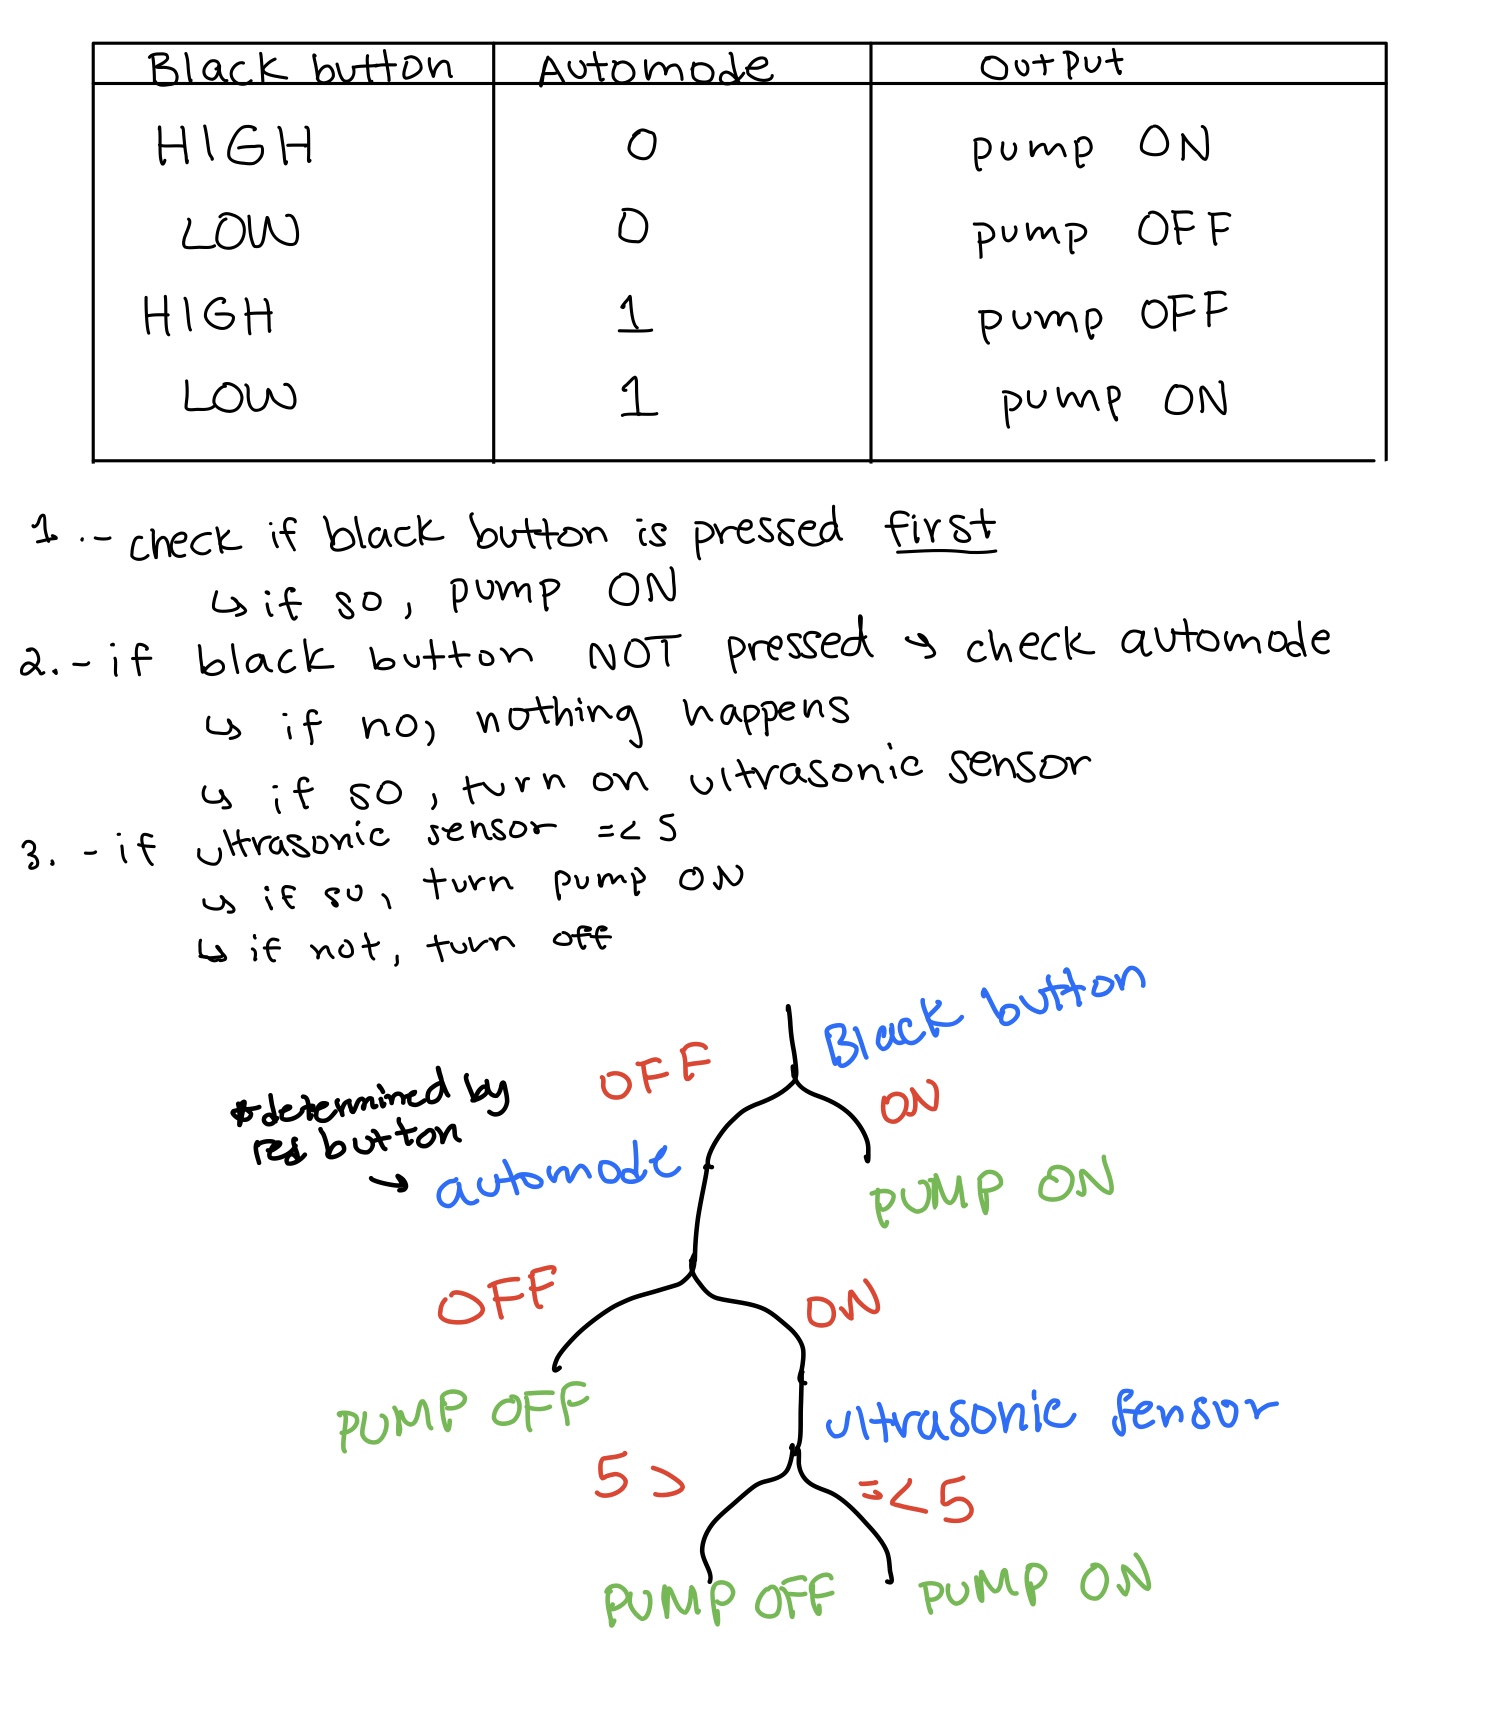 Black button Automode Output
HIGH 0 pump ON
LOW 0 pump OFF
HIGH 1 pump OFF
LOW 1 pump ON
1. - check if black button is pressed first
↳ if so, pump ON
2. - if black button NOT pressed ↳ check automode
↳ if no, nothing happens
↳ if so, turn on ultrasonic sensor
3. - if ultrasonic sensor =< 5
↳ if so, turn pump ON
↳ if not, turn off
Black button
OFF ON
*determined by
red button
→ automode
PUMP ON
OFF ON
PUMP OFF
ultrasonic sensor
5 > =< 5
PUMP OFF PUMP ON